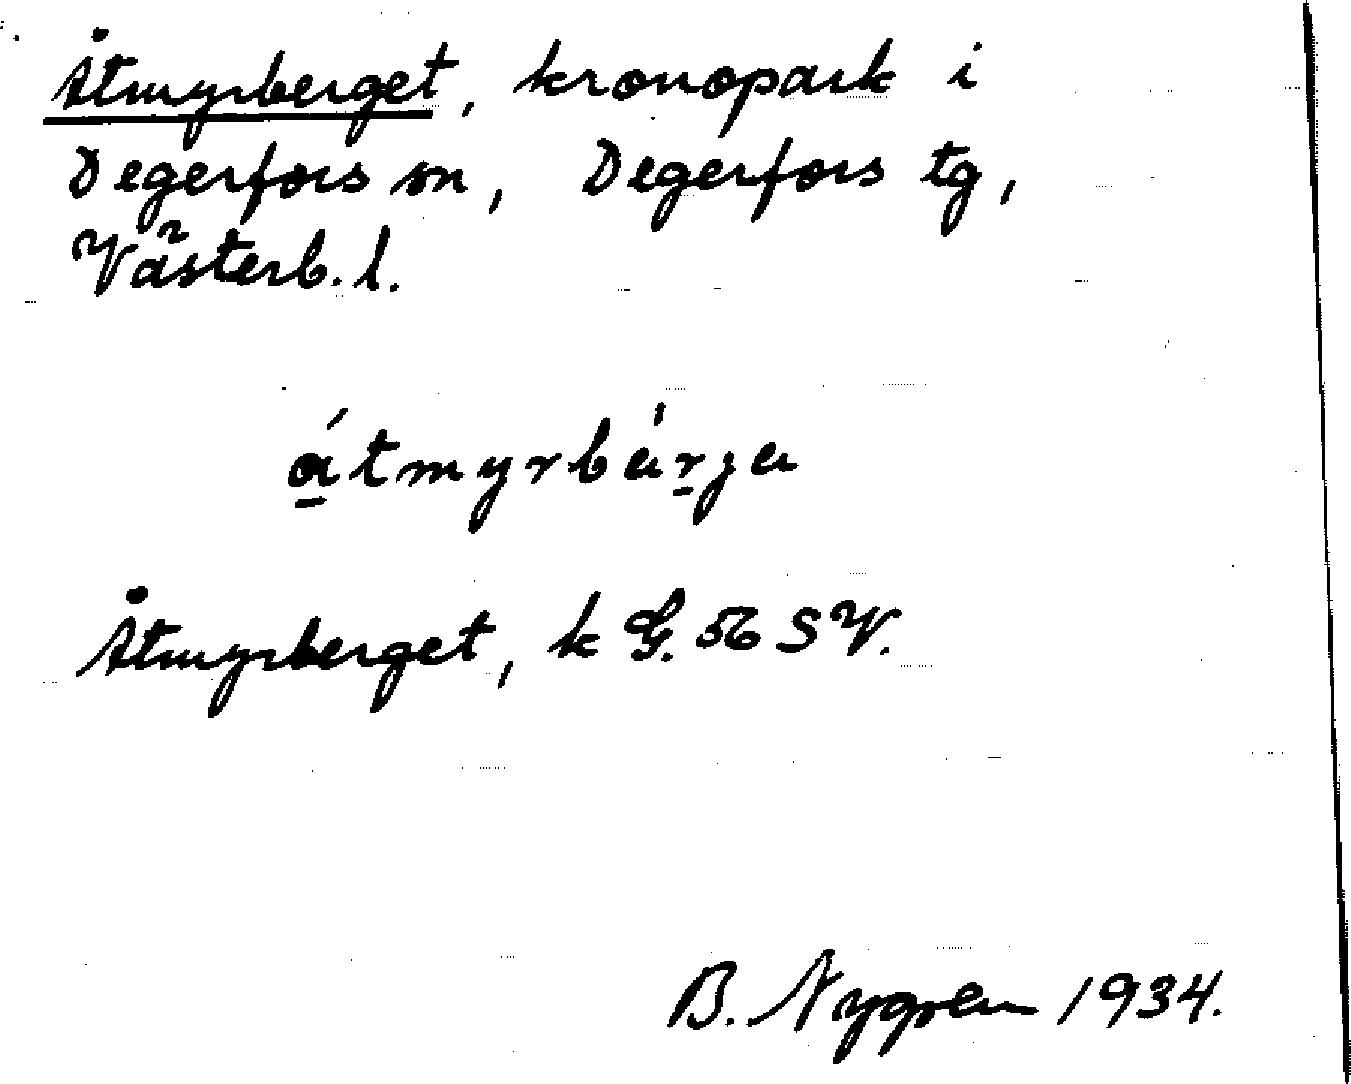 Åtmyrberget, kronopark i
Degerfors sn, Degerfors tg,
Västerb. l.
á̲tmyrbár̲ja
Åtmyrberget, k G. 56 SV.
B. Nygren 1934.